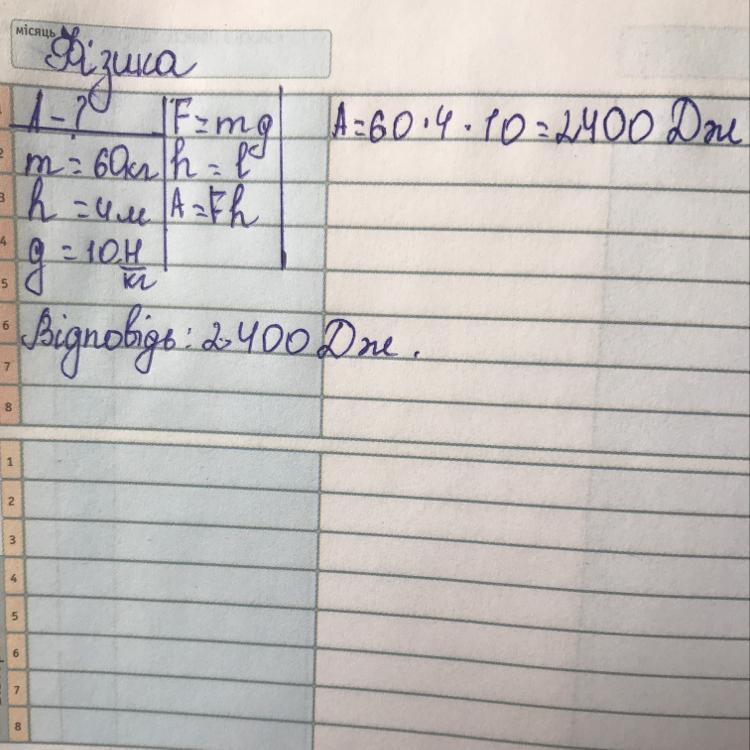 місяць
Фізика
A - ? F = mg A = 60 · 4 · 10 = 2400 Дж
m = 60 кг h = l
h = 4 м A = Fh
g = 10 Н/кг
Відповідь: 2400 Дж.
1
2
3
4
5
6
7
8
1
2
3
4
5
6
7
8